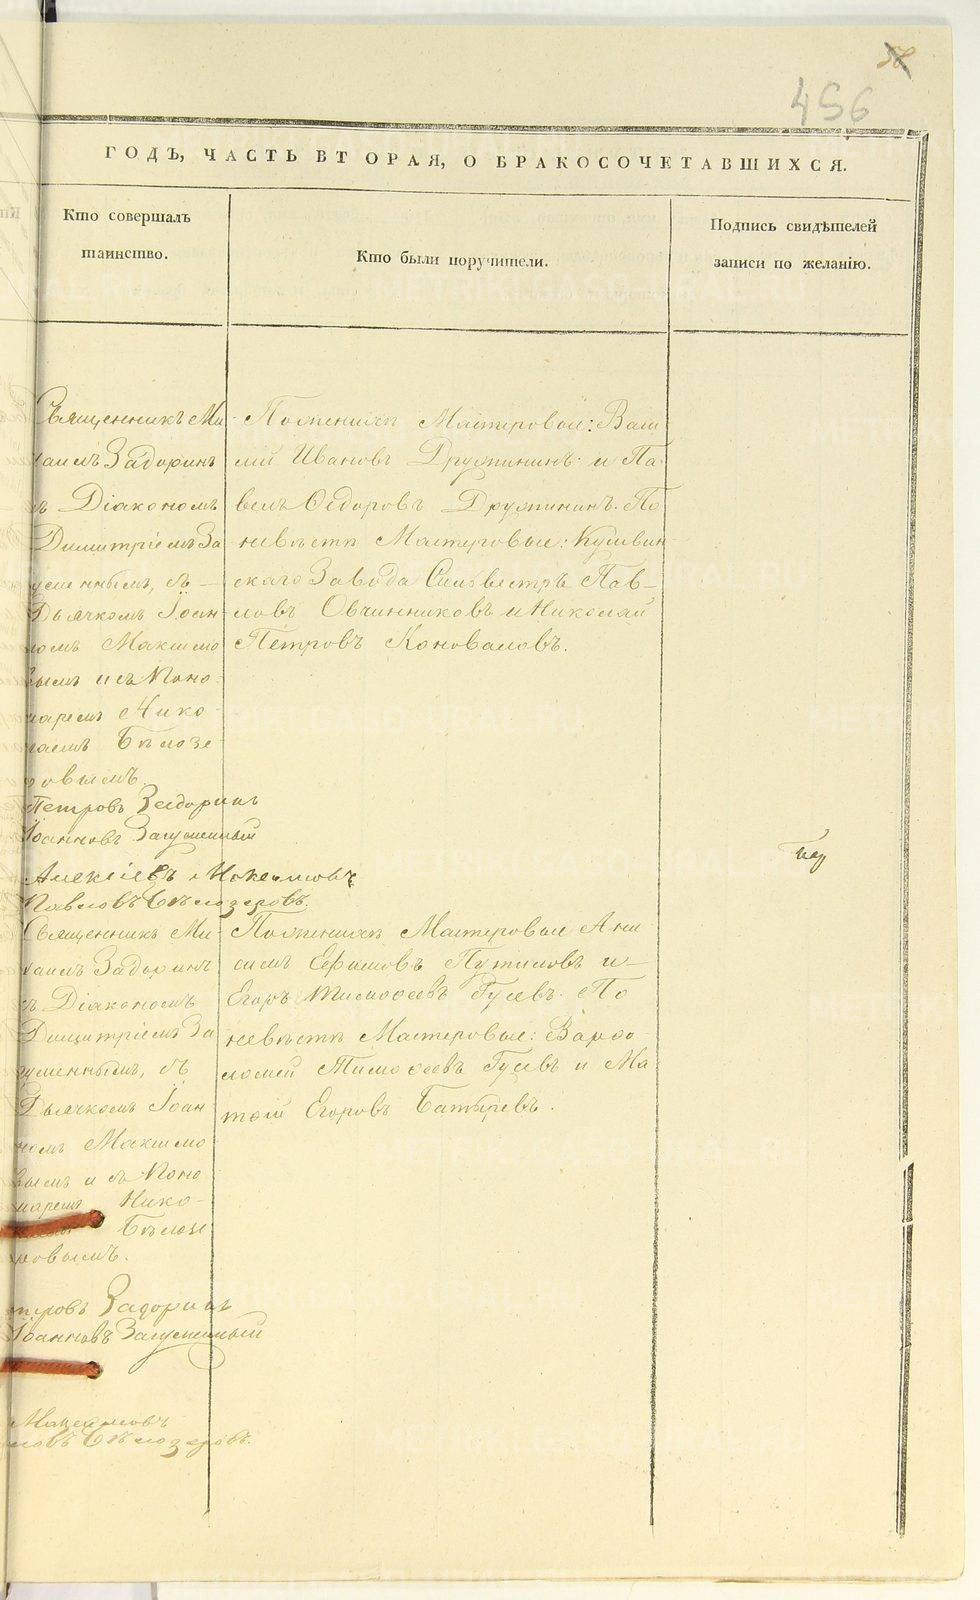 58
456
ГОДЪ, ЧАСТЬ ВТОРАЯ, О БРАКОСОЧЕТАВШИХСЯ.
Кто совершалъ
таинство.
Кто были поручители.
Подпись свидѣтелей
записи по желанію.
Священникъ Ми
хаилъ Задоринъ
съ Діакономъ
Димитріемъ За
гуменнымъ, съ
Дьячкомъ Іоан
номъ Максимо
вымъ и съ Поно
маремъ Нико
лаемъ Бѣлозе
ровымъ.
Петровъ Задоринъ
Іоанновъ Загуменный
Алексіевъ Максимовъ
Павловъ Бѣлозеровъ.
По женихѣ Мастеровые: Васи
лій Ивановъ Дружининъ и Па
велъ Ѳедоровъ Дружининъ. По
невѣстѣ Мастеровые: Кушвин
скаго Завода Сильвестръ Пав
ловъ Овчинниковъ и Николай
Петровъ Коноваловъ.
Священникъ Ми
хаилъ Задоринъ
съ Діакономъ
Димитріемъ За
гуменнымъ, съ
Дьячкомъ Іоан
номъ Максимо
вымъ и съ Поно
маремъ Нико
лаемъ Бѣлозе
ровымъ.
Петровъ Задоринъ
Іоанновъ Загуменный
Максимовъ
Бѣлозеровъ.
По женихѣ Мастеровые Ани
симъ Ефимовъ Путиловъ и
Егоръ Тимоѳеевъ Гусевъ. По
невѣстѣ Мастеровые: Варѳо
ломей Тимоѳеевъ Гусевъ и Ма
тѳій Егоровъ Батыревъ.
METRIKI.GASO-URAL.RU